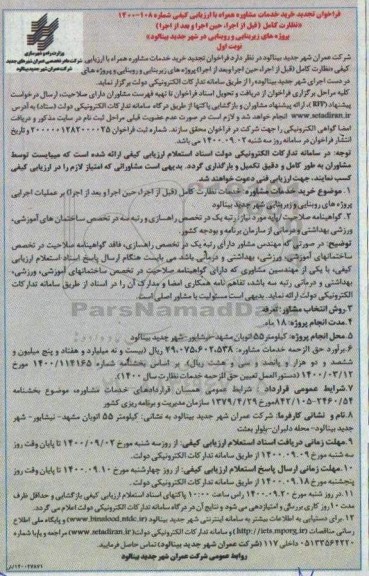 فراخوان تجدید خرید خدمات مشاوره همراه با ارزیابی کیفی شماره ۱۰۸-۱۴۰۰
«نظارت کامل (قبل از اجرا، حین اجرا و بعد از اجرا)
پروژه های زیربنایی و روبنایی در شهر جدید بینالود»
نوبت اول
وزارت راه و شهرسازی
شرکت مادر تخصصی عمران شهرهای جدید
شرکت عمران شهر جدید بینالود
شرکت عمران شهر جدید بینالود در نظر دارد فراخوان تجدید خرید خدمات مشاوره همراه با ارزیابی
کیفی «نظارت کامل (قبل از اجرا، حین اجرا و بعد از اجرا) پروژه های زیربنایی و روبنایی و پروژه های
در دست اجرای شهر جدید بینالود» را از طریق سامانه تدارکات الکترونیکی دولت برگزار نماید.
کلیه مراحل برگزاری فراخوان از دریافت و تحویل اسناد فراخوان تا تهیه فهرست مشاوران دارای صلاحیت، ارسال درخواست
پیشنهاد (RFP)، ارائه پیشنهاد مشاوران و بازگشایی پاکتها از طریق درگاه سامانه تدارکات الکترونیکی دولت (ستاد) به آدرس
www.setadiran.ir انجام خواهد شد و لازم است در صورت عدم عضویت قبلی مراحل ثبت نام در سایت مذکور و دریافت
امضا گواهی الکترونیکی را جهت شرکت در فراخوان محقق سازند. شماره ثبت فراخوان ۲۰۰۰۰۰۱۲۸۲۰۰۰۰۲۵ و تاریخ
انتشار فراخوان در سامانه روز سه شنبه ۱۴۰۰.۰۹.۰۲ می باشد.
توجه: در سامانه تدارکات الکترونیکی دولت اسناد استعلام ارزیابی کیفی ارائه شده است که میبایست توسط
مشاوران به طور کامل و دقیق تکمیل و بارگذاری گردد. بدیهی است مشاورانی که امتیاز لازم را در ارزیابی کیفی
کسب نمایند، جهت ارزیابی فنی دعوت خواهند شد.
۱. موضوع خرید خدمات مشاوره: خدمات نظارت کامل (قبل از اجرا، حین اجرا و بعد از اجرا) بر عملیات اجرایی
پروژه های روبنایی و زیربنایی شهر جدید بینالود
۲. گواهینامه صلاحیت/پایه مورد نیاز: رتبه یک در تخصص راهسازی و رتبه سه در تخصص ساختمان های آموزشی،
ورزشی بهداشتی و درمانی از سازمان برنامه و بودجه کشور.
توضیح: در صورتی که مهندس مشاور دارای رتبه یک در تخصص راهسازی، فاقد گواهینامه صلاحیت در تخصص
ساختمانهای آموزشی، ورزشی، بهداشتی و درمانی باشد می بایست هنگام ارسال پاسخ اسناد استعلام ارزیابی
کیفی، با یکی از مهندسین مشاوری که دارای گواهینامه صلاحیت در تخصص ساختمانهای آموزشی، ورزشی،
بهداشتی و درمانی رتبه سه باشد، تفاهم نامه همکاری امضا و مدارک آن را در اسناد از طریق سامانه تدارکات
الکترونیکی دولت ارائه نماید. بدیهی است مسئولیت با مشاور اصلی است.
۳. روش انتخاب مشاور: تعرفه
۴. مدت انجام پروژه: ۱۸ ماه.
۵. محل انجام پروژه: کیلومتر ۵۵ اتوبان مشهد-نیشابور- شهر جدید بینالود
۶. برآورد حق الزحمه خدمات مشاوره: ۲۹.۰۷۵.۶۰۲.۵۳۸ ریال (بیست و نه میلیارد و هفتاد و پنج میلیون و
ششصد و دو هزار و پانصد و سی و هشت ریال)، بر اساس بخشنامه شماره ۱۴۰۰/۱۱۴۱۶۵ مورخ
۱۴۰۰/۰۳/۱۲ (دستورالعمل تعیین حق الزحمه خدمات نظارت سال ۱۴۰۰).
۷. شرایط عمومی قرارداد: شرایط عمومی همسان قراردادهای خدمات مشاوره، موضوع بخشنامه
۸۴۲/۱۰۵-۲۴۶۰/۵۴ مورخ ۱۳۷۹/۴/۲۹ سازمان مدیریت و برنامه ریزی کشور
۸. نام و نشانی کارفرما: شرکت عمران شهر جدید بینالود به نشانی: کیلومتر ۵۵ اتوبان مشهد- نیشابور- شهر
جدید بینالود- محله دلبران- بلوار بعثت
۹. مهلت زمانی دریافت اسناد استعلام ارزیابی کیفی: از روز سه شنبه مورخ ۱۴۰۰/۰۹/۰۲ تا پایان وقت روز
سه شنبه مورخ ۱۴۰۰.۰۹.۰۹ از طریق سامانه تدارکات الکترونیکی دولت.
۱۰. مهلت زمانی ارسال پاسخ استعلام ارزیابی کیفی: از روز چهارشنبه مورخ ۱۴۰۰.۰۹.۱۰ تا پایان وقت روز
پنجشنبه مورخ ۱۴۰۰.۰۹.۱۸ از طریق سامانه تدارکات الکترونیکی دولت.
۱۱. در روز شنبه مورخ ۱۴۰۰.۰۹.۲۰ راس ساعت ۱۰:۰۰ پاکتهای اسناد استعلام ارزیابی کیفی بازگشایی و حداقل ظرف
مدت ۱۰ روز کاری بررسی و امتیازدهی می شود و نتایج آن در درگاه سامانه تدارکات الکترونیکی دولت اعلام می گردد.
۱۲. برای دستیابی به اطلاعات بیشتر به سامانه اینترنتی شهر جدید بینالود (www.binalood.ntdc.ir) و پایگاه ملی اطلاع
رسانی مناقصات (http://iets.mporg.ir) و سامانه تدارکات الکترونیکی دولت (www.setadiran.ir) مراجعه و یا با شماره
۰۵۱۳۳۵۶۲۲۲۰ داخلی ۱۱۷ (شرکت عمران شهر جدید بینالود) تماس حاصل فرمایید.
روابط عمومی شرکت عمران شهر جدید بینالود
ParsNamadData